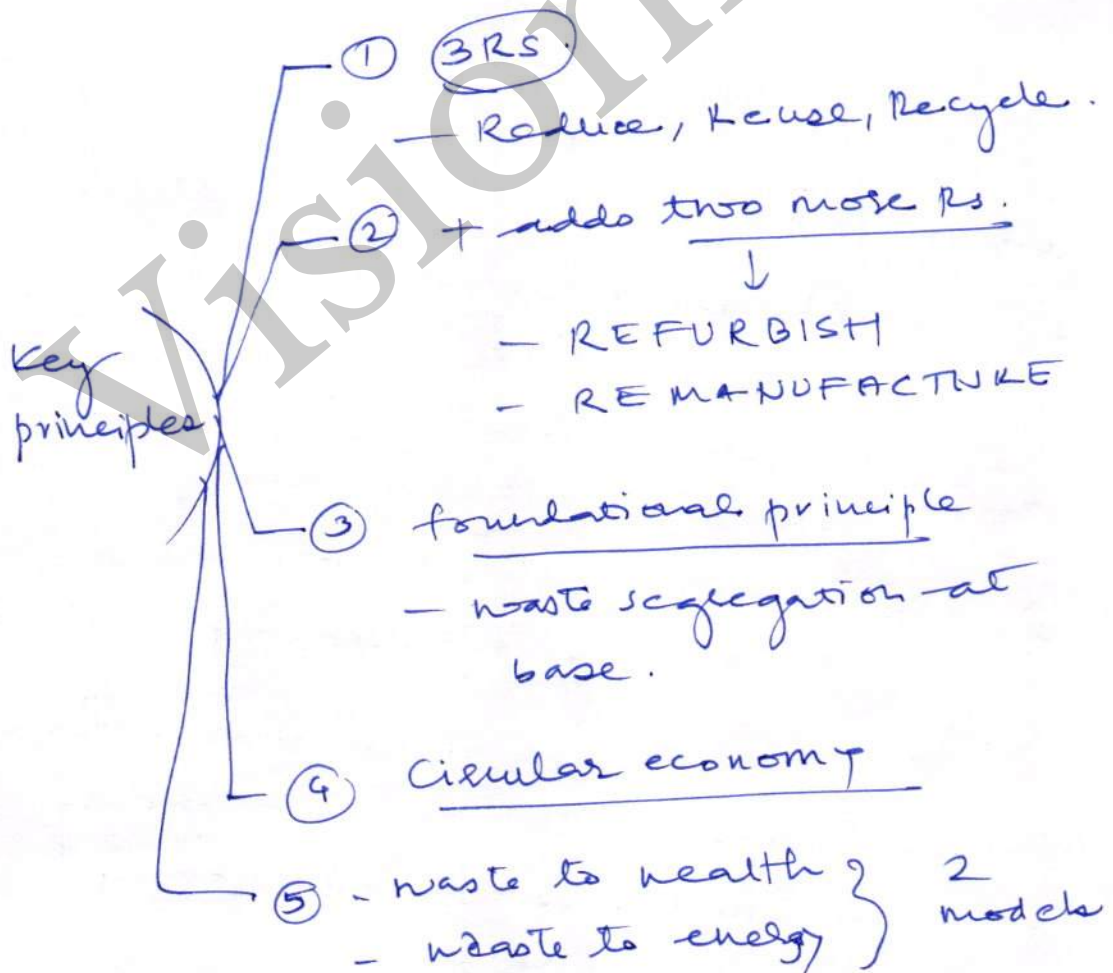 ① 3RS.
— Reduce, Reuse, Recycle.
② + adds two more Rs.
↓
— REFURBISH
— REMANUFACTURE
Key
principles
③ foundational principle
— waste segregation at
base.
④ Circular economy
⑤ - waste to wealth } 2
- waste to energy } models
Vision